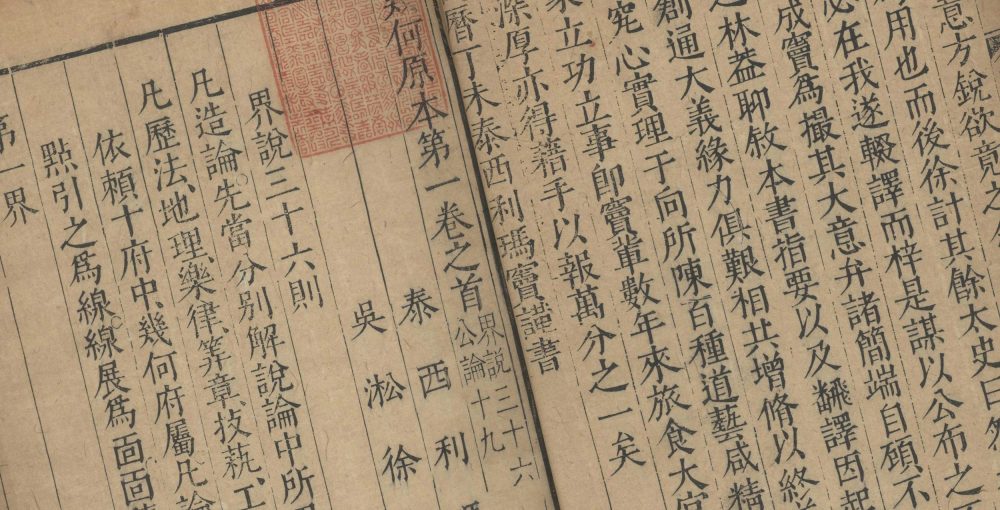 意方銳欲竟之
用也而後徐計其餘太史曰然
必在我遂輟譯而梓是謀以公布之不
成竇爲撮其大意弁諸簡端自顧不
之林蓋聊敘本書指要以及翻譯因起
創通大義緣力俱艱相共增脩以終
究心實理于向所陳百種道藝咸精
立功立事卽竇輩數年來旅食大官
深厚亦得藉手以報萬分之一矣
曆丁未泰西利瑪竇謹書
幾何原本第一卷之首 界說三十六 公論十九
泰西利
吳淞徐
界說三十六則
凡造論、先當分別解說論中所
凡歷法、地理、樂律、筭章、技藝、工
依賴十府中、幾何府屬、凡論
點引之爲線、線展爲面、面
第一界